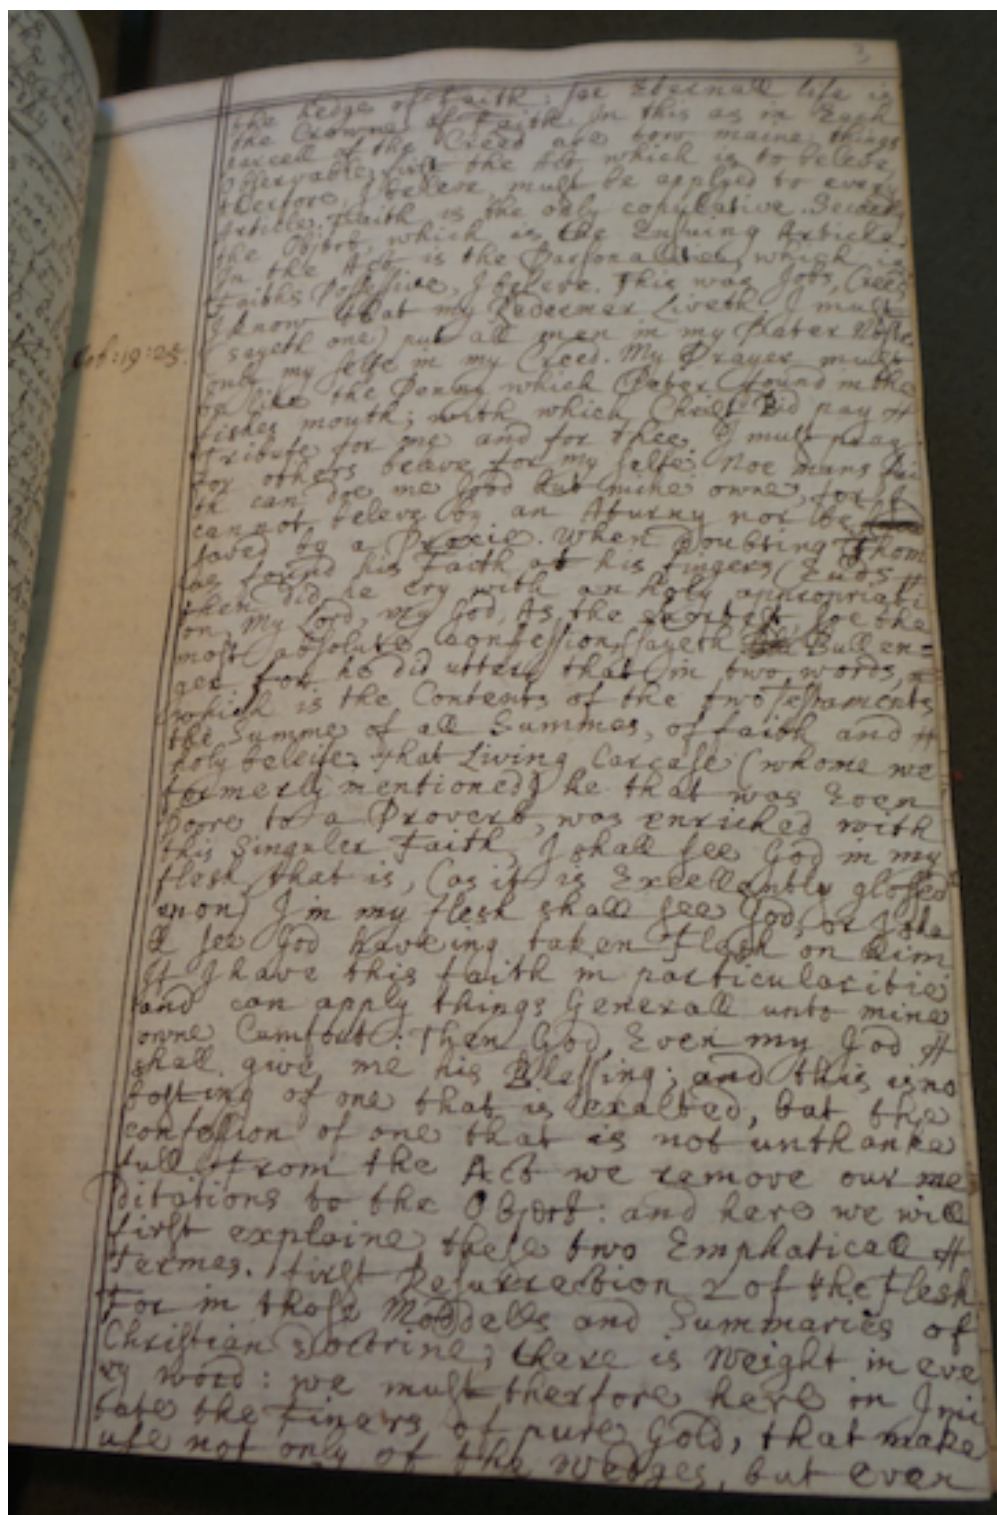 3
the hedge of Faith; for Eternall life is
the Crowne of Faith. In this as in Each
parcell of the Creed are tow maine things
Observable, first the Act which is to beleve,
therfore, I beleve, must be applyed to every
Article. Faith is the only copulative. Secondly
the Object, which is the Ensuing Article.
In the Act is the Parsonalitie, which is
Faiths Possessive, I beleve. This was Jobs, Creed
I know that my Redeemer Liveth, I must
Job:19:25.
(sayeth one) put all men in my Pater Noster
only my selfe in my Creed. My Prayer must
be like the Penny which Peter found in the
fishes mouth; with which Christ did pay
tribute for me and for thee, I must pray
for others beleve for my selfe. Noe mans fai
th can doe me Good but mine owne, for I
cannot, beleve by an Aturny nor be
saved by a Proxie. When Doubting Thom
as found his Faith at his fingers Ends
then did he cry with an holy appropriati
on, My Lord, my God, As the shortest, soe the
most absolute Confession, (sayeth Bullen=
ger for he did utter that in two words,
which is the Contents of the two Testaments,
the Summe of all Summes, of faith and
holy beleife. That Living Carcase (whome we
formerly mentioned) he that was Even
poore to a Proverb, was enriched with
this Singuler Faith, I shall see God in my
flesh, that is, (as it is Excellently glossed
upon) I in my flesh shall see God, or I sha
ll see God haveing taken Flesh on him
If I have this faith in particularitie
and can apply things Generall unto mine
owne Comfort: Then God, Even my God
shall give me his Blessing; and this is no
bosting of one that is exalted, but the
confession of one that is not unthanke
full. From the Act we remove our me
ditations to the Object: and here we will
first explaine these two Emphaticall
Termes. first Resurrection 2 of the Flesh
For in those Moddells and Summaries of
Christian Doctrine; there is Weight in eve
ry Word: we must therfore here in Imi
tate the Finers of pure Gold, that make
use not only of the Wedges, but even